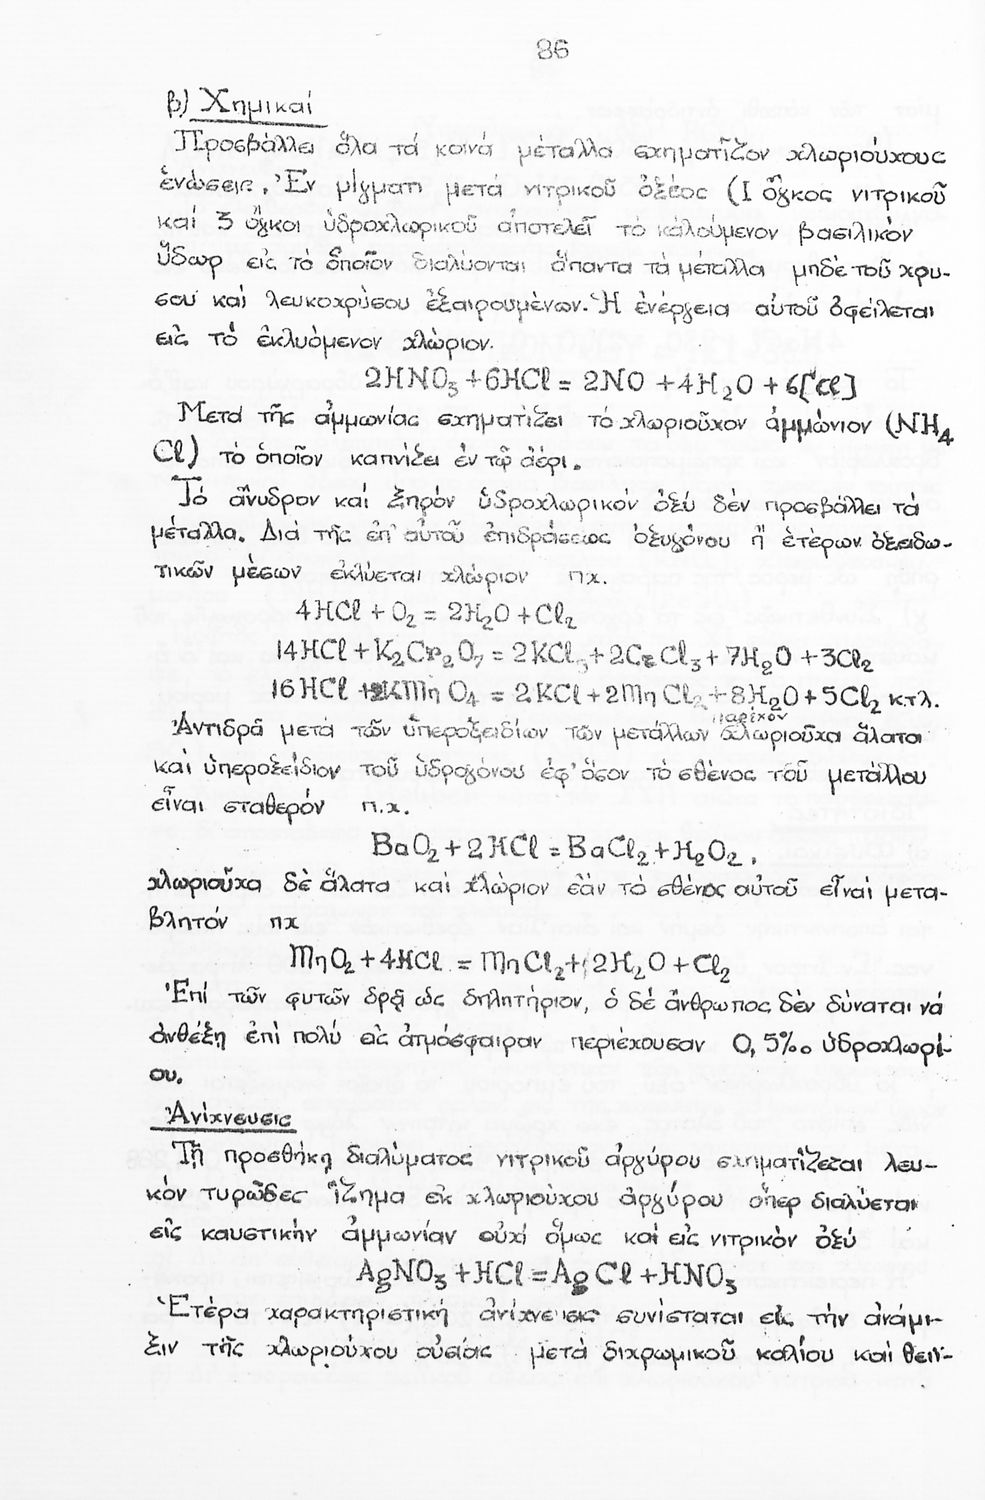 86
β) Χημικαί
Προσβάλλει ὅλα τά κοινά μέταλλα σχηματῖζον χλωριούχους
ἑνώσεις. Ἐν μίγματι μετά νιτρικοῦ ὀξέος (I ὄγκος νιτρικοῦ
καί 3 ὄγκοι ὑδροχλωρικοῦ ἀποτελεῖ τό καλούμενον βασιλικόν
ὕδωρ εἰς τό ὁποῖον διαλύονται ἅπαντα τά μέταλλα μηδέ τοῦ χρυ-
σοῦ καί λευκοχρύσου ἐξαιρουμένων. Ἡ ἐνέργεια αὐτοῦ ὀφείλεται
εἰς τό ἐκλυόμενον χλώριον.
2HNO₃ + 6HCl = 2NO + 4H₂O + 6[Cl]
Μετά τῆς ἀμμωνίας σχηματίζει τό χλωριοῦχον ἀμμώνιον (NH₄
Cl) τό ὁποῖον καπνίζει ἐν τῷ ἀέρι.
Τό ἄνυδρον καί ξηρόν ὑδροχλωρικόν ὀξύ δέν προσβάλλει τά
μέταλλα. Διά τῆς ἐπ' αὐτοῦ ἐπιδράσεως ὀξυγόνου ἤ ἑτέρων ὀξειδω-
τικῶν μέσων ἐκλύεται χλώριον πχ.
4HCl + O₂ = 2H₂O + Cl₂
14HCl + K₂Cr₂O₇ = 2KCl + 2CrCl₃ + 7H₂O + 3Cl₂
16HCl + 2KMnO₄ = 2KCl + 2MnCl₂ + 8H₂O + 5Cl₂ κ.τ.λ.
παρέχον
Ἀντιδρᾶ μετά τῶν ὑπεροξειδίων τῶν μετάλλων χλωριοῦχα ἅλατα
καί ὑπεροξείδιον τοῦ ὑδρογόνου ἐφ' ὅσον τό σθένος τοῦ μετάλλου
εἶναι σταθερόν π.χ.
BaO₂ + 2HCl = BaCl₂ + H₂O₂.
χλωριοῦχα δέ ἅλατα καί χλώριον ἐάν τό σθένος αὐτοῦ εἶναι μετα-
βλητόν πχ
MnO₂ + 4HCl = MnCl₂ + 2H₂O + Cl₂
Ἐπί τῶν φυτῶν δρᾷ ὡς δηλητήριον, ὁ δέ ἄνθρωπος δέν δύναται νά
ἀνθέξῃ ἐπί πολύ εἰς ἀτμόσφαιραν περιέχουσαν 0,5‰ ὑδροχλωρί-
ου.
Ἀνίχνευσις
Τῇ προσθήκῃ διαλύματος νιτρικοῦ ἀργύρου σχηματίζεται λευ-
κόν τυρῶδες ἵζημα ἐκ χλωριούχου ἀργύρου ὅπερ διαλύεται
εἰς καυστικήν ἀμμωνίαν οὐχί ὅμως καί εἰς νιτρικόν ὀξύ
AgNO₃ + HCl = AgCl + HNO₃
Ἑτέρα χαρακτηριστική ἀνίχνευσις συνίσταται εἰς τήν ἀνάμι-
ξιν τῆς χλωριούχου οὐσίας μετά διχρωμικοῦ καλίου καί θειϊ-